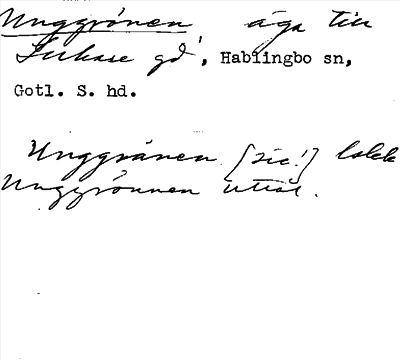 Unggrönen äga till
gd, Hablingbo sn,
Gotl. S. hd.
Unggränen [sic!] lokk
Unggrönnen uttal.